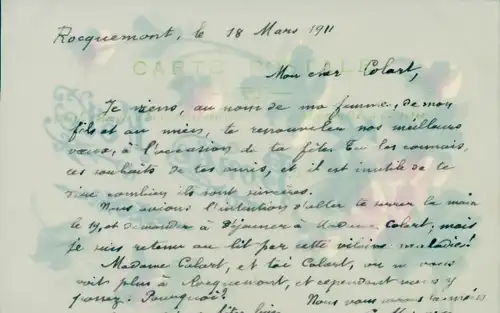 Rocquemont, le 18 Mars 1911
CARTE POSTALE
Mon cher Colart,
Je viens, au nom de ma femme, de mon
fils et au mien, te renouveler nos meilleurs
vœux, à l'occasion de ta fête. Tu les connais,
ces souhaits de tes amis, et il est inutile de te
dire combien ils sont sincères.
Nous avions l'intention d'aller te serrer la main
le 19, et demander à Déjeuner à Madame Colart; mais
je suis retenu au lit par cette vilaine maladie!
Madame Colart, et toi Colart, on ne vous
voit plus à Rocquemont, et cependant nous y
pensez. Pourquoi? Nous vous